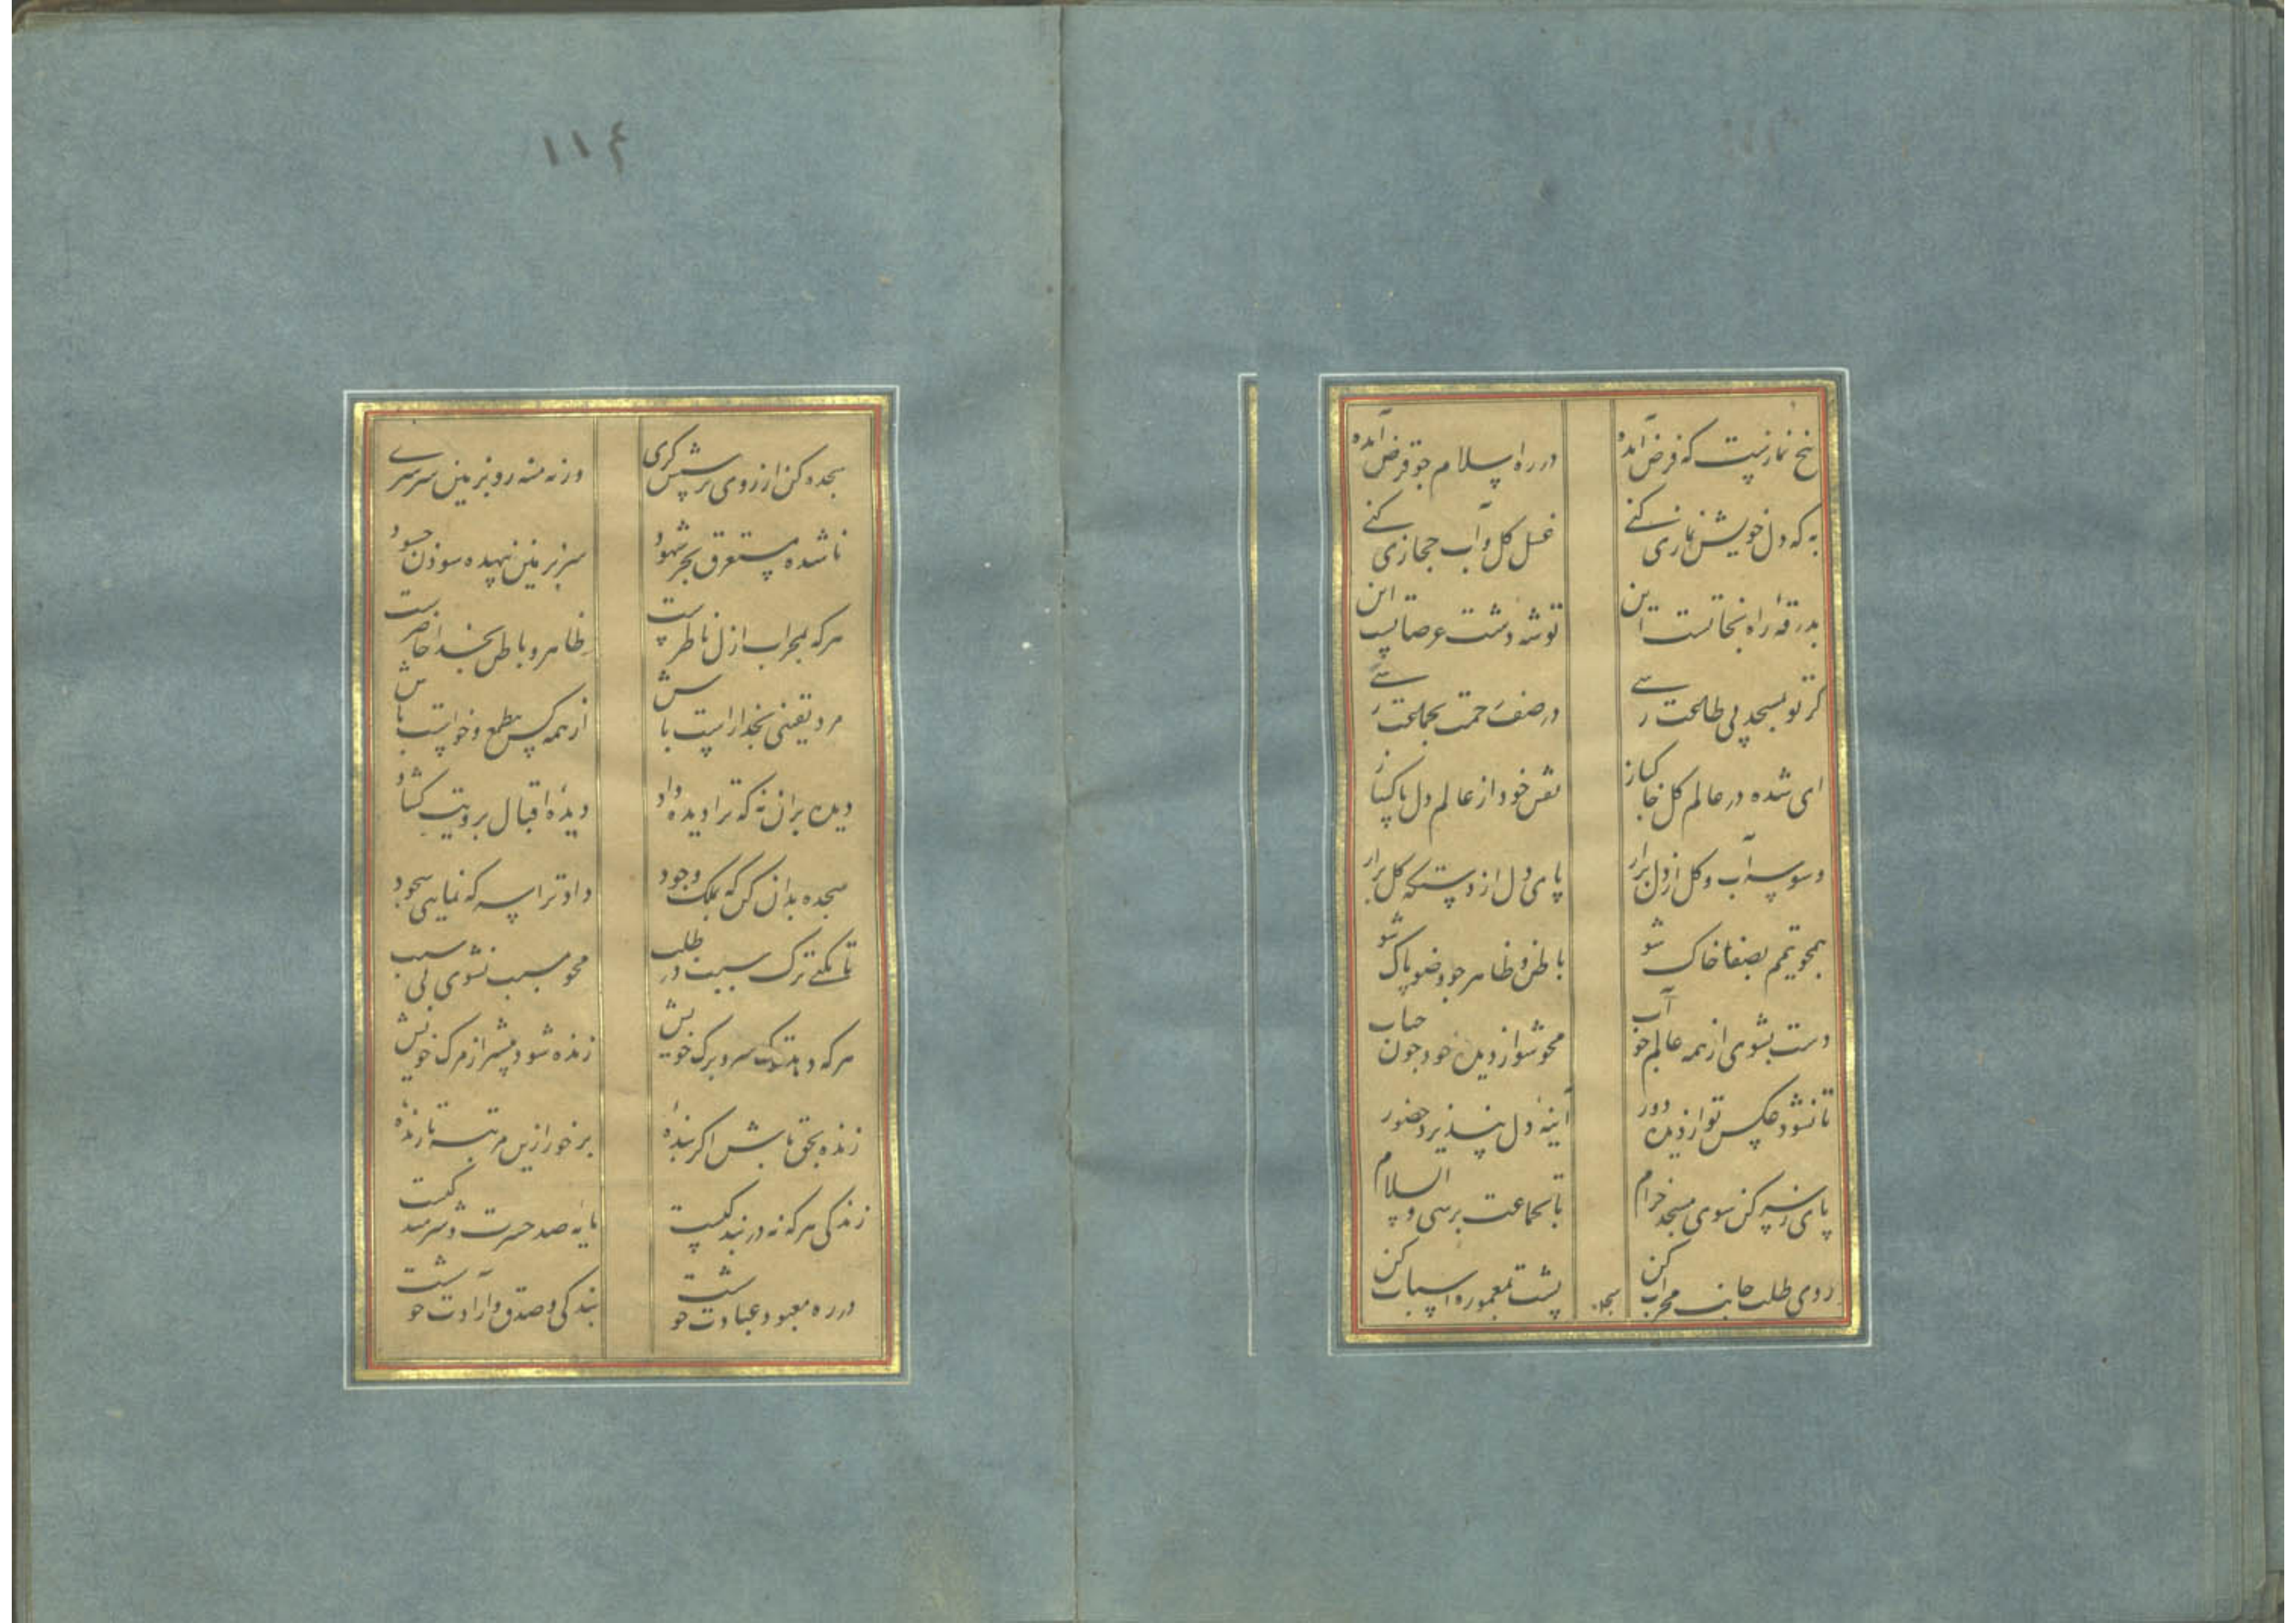 پنج نمازست که فرض آمده
در ره اسلام جو قرض آمده
به که دل خویش نمازی کنے
غسل کل و آب حجازی کنے
بدرقهٔ راه نجاتست این
توشه دشت عرصاتست این
کر تو بمسجد پی طاعت رسے
در صف رحمت بجماعت رسے
ای شده در عالم کل خاکباز
نقش خود از عالم دل پاکباز
وسوسه آب و کل از دل برار
پای دل از دستکه کل برار
همجو تیمم بصفا خاک شو
باطن و ظاهر جو وضو پاک شو
دست بشوی از همه عالم جو آب
محو شو از دیدن خود جون حباب
تا نشود عکس تو از دیده دور
آینهٔ دل نپذیرد حضور
پای ز سر کن سوی مسجد خرام
تا بجماعت برسی والسلام
روی طلب جانب محراب کن
پشت بمعموره اسباب کن
سجده
۱۱۴
سجده کن از روی پرستش کری
ورنه منه رو بزمین سرسرے
ناشده مستغرق بحر شهود
سر بزمین بیهده سودن جسود
هرکه بمحراب ازل ناظرست
ظاهر و باطن بخدا حاضرست
مرد یقینی بخدا راست باش
از همه کس بی طمع و خواست باش
دیده بران نه که ترا دیده داد
دیدهٔ اقبال برویت کشاد
سجده بدان کن که بملک وجود
داد ترا سر که نمایی سجود
تا نکنے ترک سبب در طلب
محو مسبب نشوی بی سبب
هرکه دهد ترک سر و برک خویش
زنده شود پیشتر از مرک خویش
زنده بحق باش اکر بندهٔ
برخور ازین مرتبه تا زندهٔ
زندکی هرکه نه در بندکیست
مایه صد حسرت و شرمندکیست
در ره معبود عبادت خوشست
بندکی و صدق و ارادت خوشست